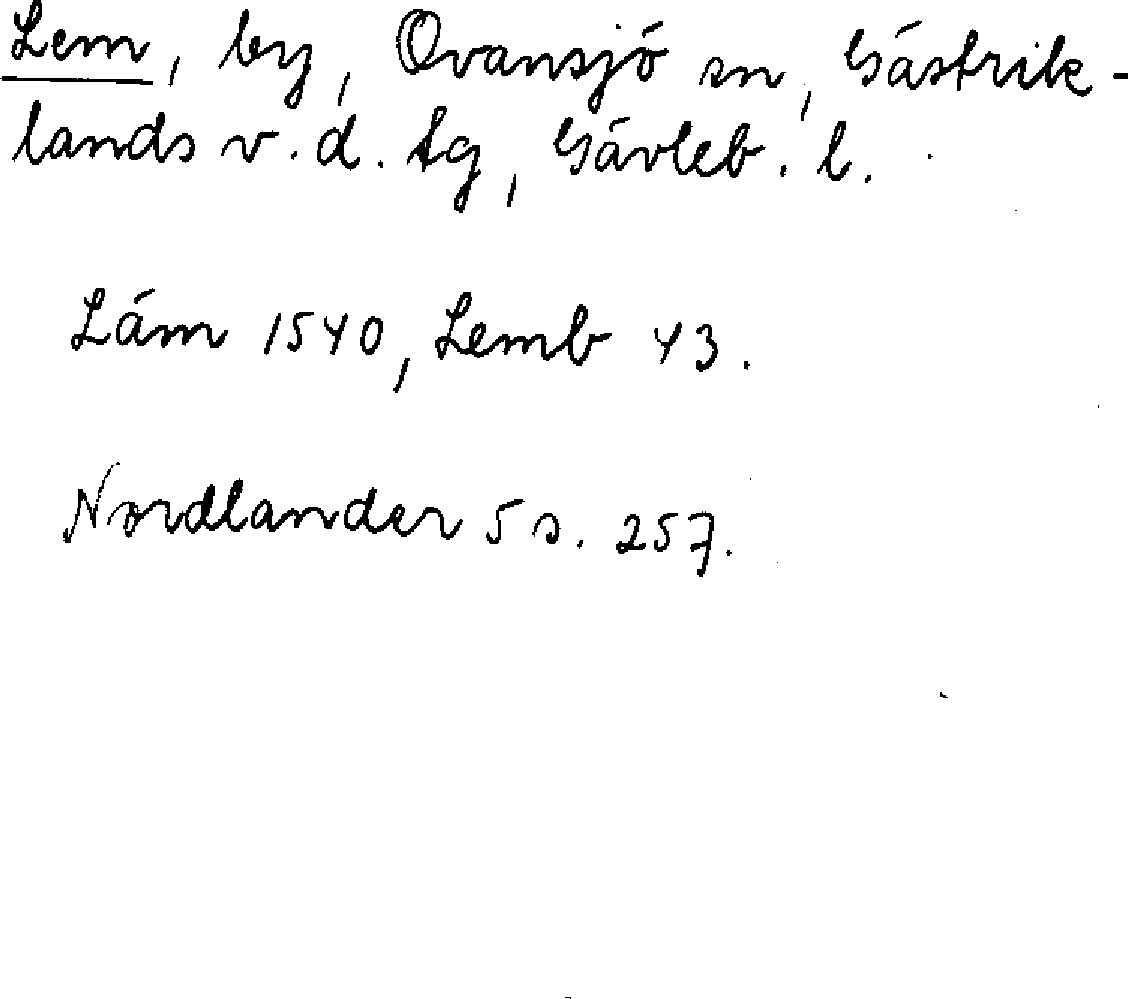 Lem, by, Ovansjö sn, Gästrik-
lands v. d. tg, Gävleb. l.
Läm 1540, Lemb 43.
Nordlander 5 s. 257.